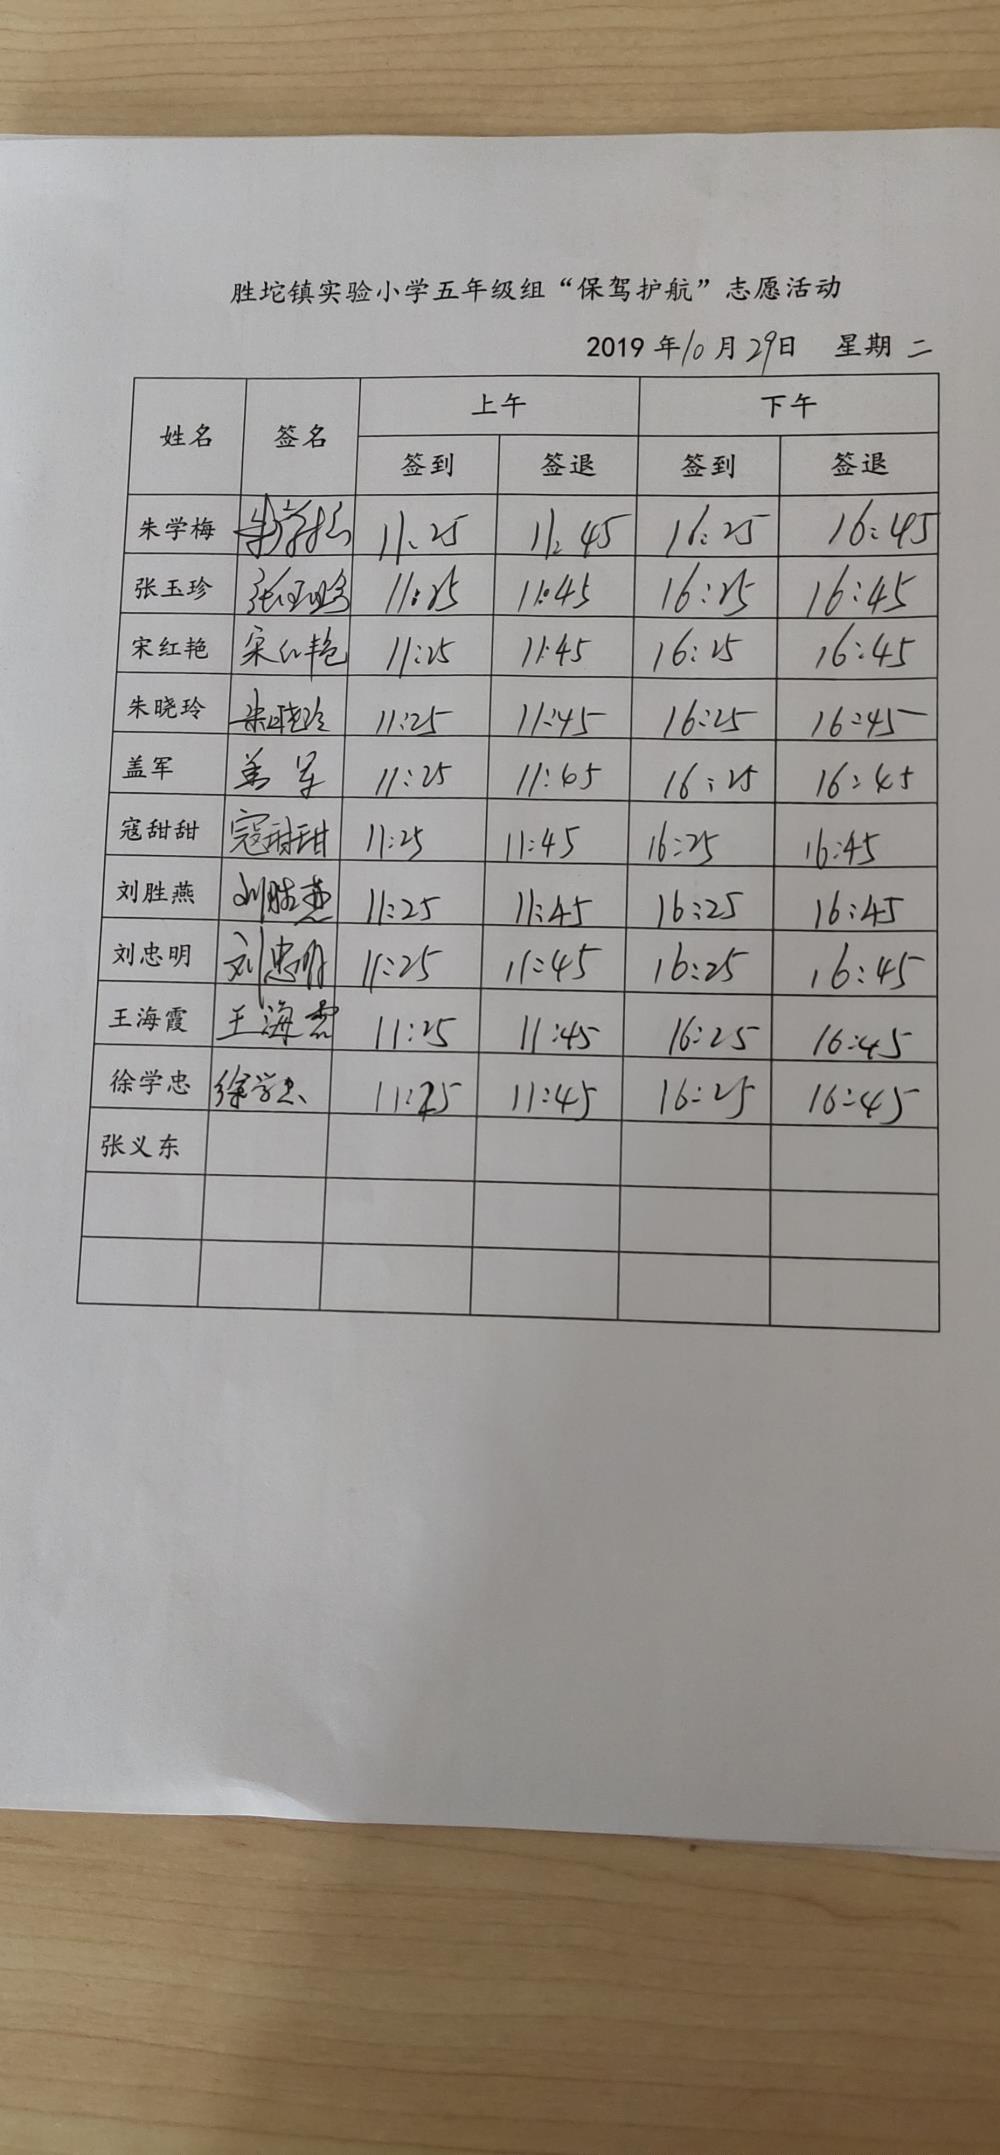 胜坨镇实验小学五年级组“保驾护航”志愿活动
2019 年10月29日 星期 二
姓名 签名 上午 下午
签到 签退 签到 签退
朱学梅 朱学梅 11:25 11:45 16:25 16:45
张玉珍 张玉珍 11:25 11:45 16:25 16:45
宋红艳 宋红艳 11:25 11:45 16:25 16:45
朱晓玲 朱晓玲 11:25 11:45 16:25 16:45
盖军 盖军 11:25 11:45 16:25 16:45
寇甜甜 寇甜甜 11:25 11:45 16:25 16:45
刘胜燕 刘胜燕 11:25 11:45 16:25 16:45
刘忠明 刘忠明 11:25 11:45 16:25 16:45
王海霞 王海霞 11:25 11:45 16:25 16:45
徐学忠 徐学忠 11:25 11:45 16:25 16:45
张义东